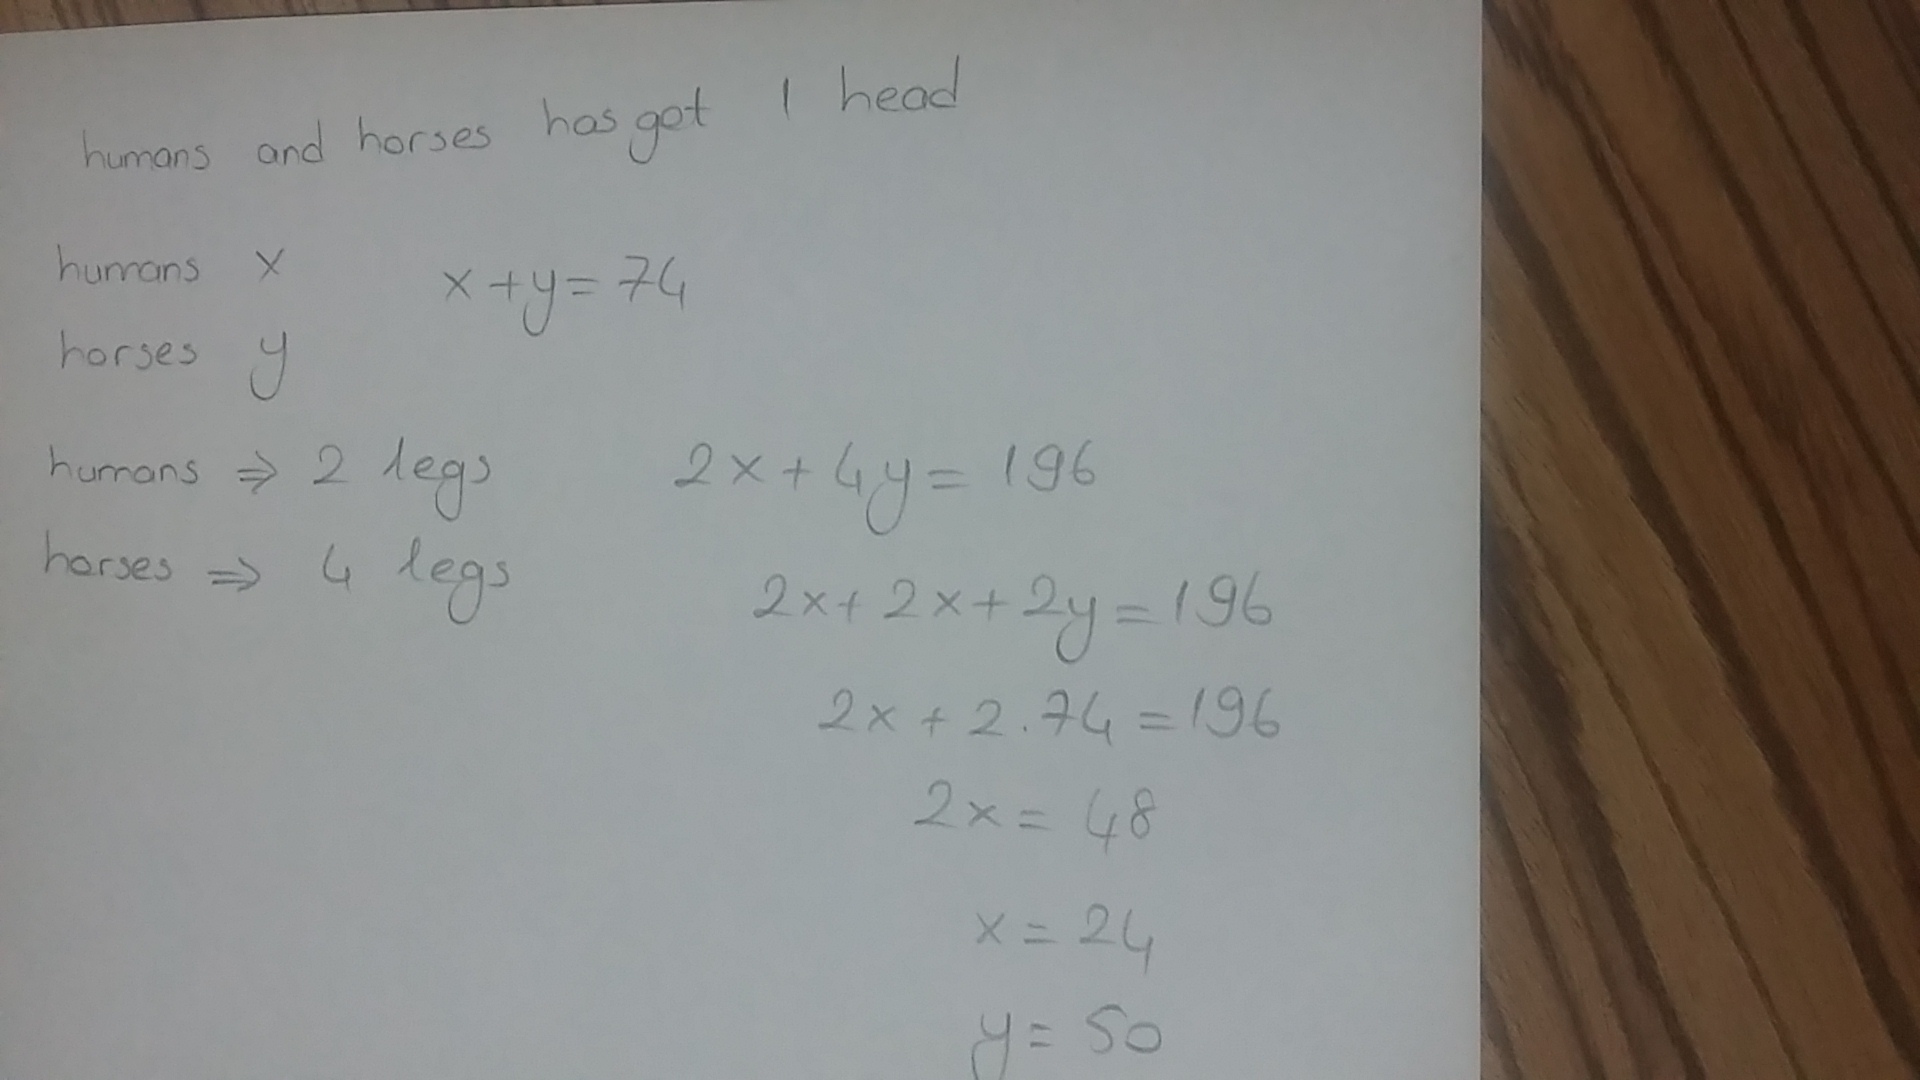 humans and horses has got 1 head
humans x x+y=74
horses y
humans ⇒ 2 legs 2x+4y=196
horses ⇒ 4 legs
2x+2x+2y=196
2x+2.74=196
2x=48
x=24
y=50